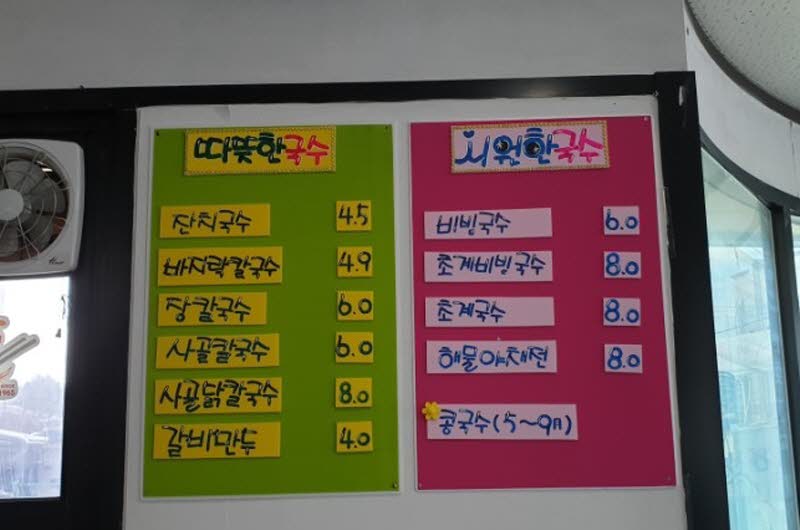 따뜻한국수
잔치국수 4.5
바지락칼국수 4.9
장칼국수 6.0
사골칼국수 6.0
사골닭칼국수 8.0
갈비만두 4.0
시원한국수
비빔국수 6.0
초계비빔국수 8.0
초계국수 8.0
해물야채전 8.0
콩국수(5~9月)